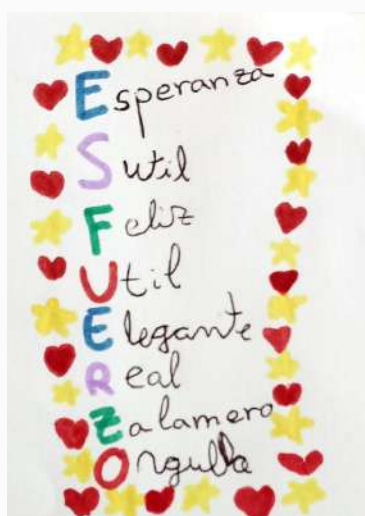 Esperanza
Sutil
Feliz
Util
Elegante
Real
Zalamero
Orgullo